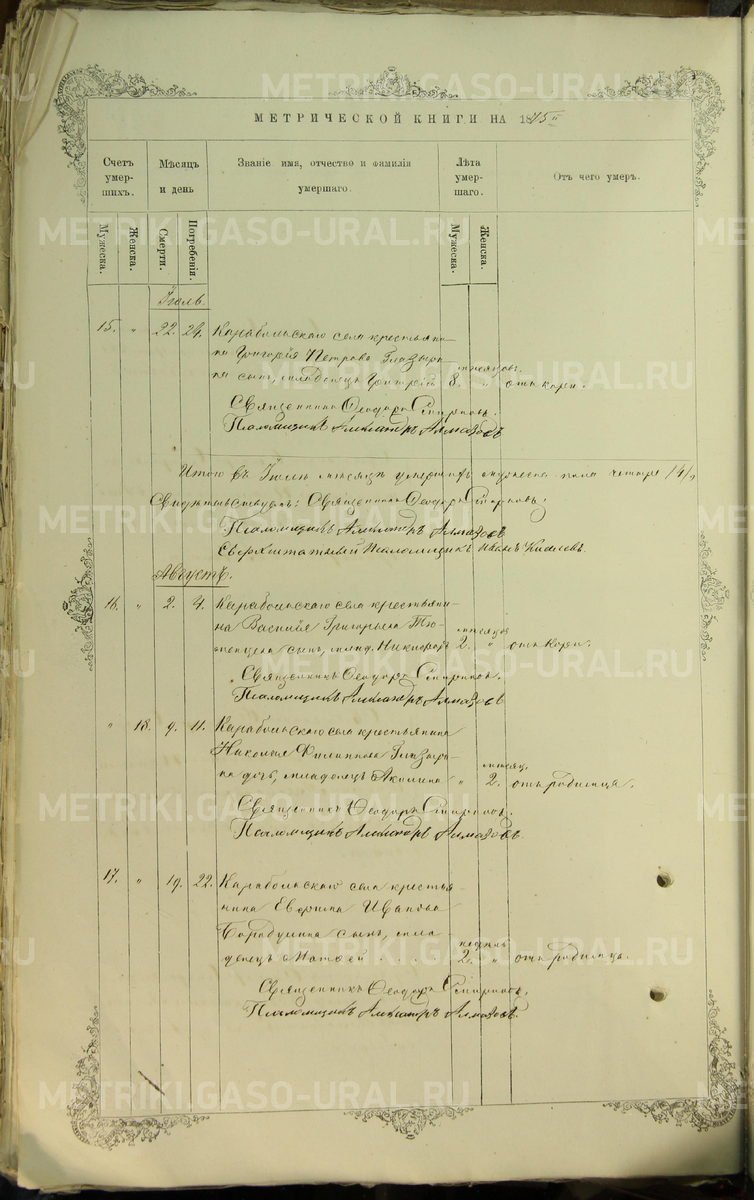 МЕТРИЧЕСКОЙ КНИГИ НА 18
Счетъ умер-шихъ. Мѣсяцъ и день Званіе имя, отчество и фамилія умершаго. Лѣта умер-шаго. Отъ чего умеръ.
Мужеска. Женска. Смерти. Погребенія. Мужеска. Женска.
Іюль.
15. " 22. 24. Карабольскаго села крестьяни-
на Григорія Петрова Глазыри- мѣсяцовъ.
на сынъ, младенецъ Григорій 8. " отъ кори.
Священникъ Ѳеодоръ Смирновъ.
Псаломщикъ Александръ Алмазовъ
Итого въ Іюлѣ мѣсяцѣ умершихъ мужеска пола четыре /4/
Свидѣтельствуемъ: Священникъ Ѳеодоръ Смирновъ.
Псаломщикъ Александръ Алмазовъ
Сверхштатный псаломщикъ Иванъ Киселевъ.
Августъ.
16. " 2. 4. Карабольскаго села крестьяни-
на Василія Григорьева
мѣсяцов
сынъ, млад. Никифоръ 2. " отъ кори.
Священникъ Ѳеодоръ Смирновъ.
Псаломщикъ Александръ Алмазовъ
" 18. 9. 11. Карабольскаго села крестьянина
Николая Филиппова Глазыри- мѣсяц.
на дочь, младенецъ Акилина " 2. отъ родимца.
Священникъ Ѳеодоръ Смирновъ.
Псаломщикъ Александръ Алмазовъ.
17. " 19. 22. Карабольскаго села крестья-
нина Ефрема Иванова
Барабулина сынъ, мла- недѣль
денецъ Матѳей . . . . 2. " отъ родимца.
Священникъ Ѳеодоръ Смирновъ.
Псаломщикъ Александръ Алмазовъ.
METRIKI.GASO-URAL.RU